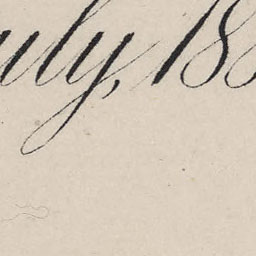 uly, 188